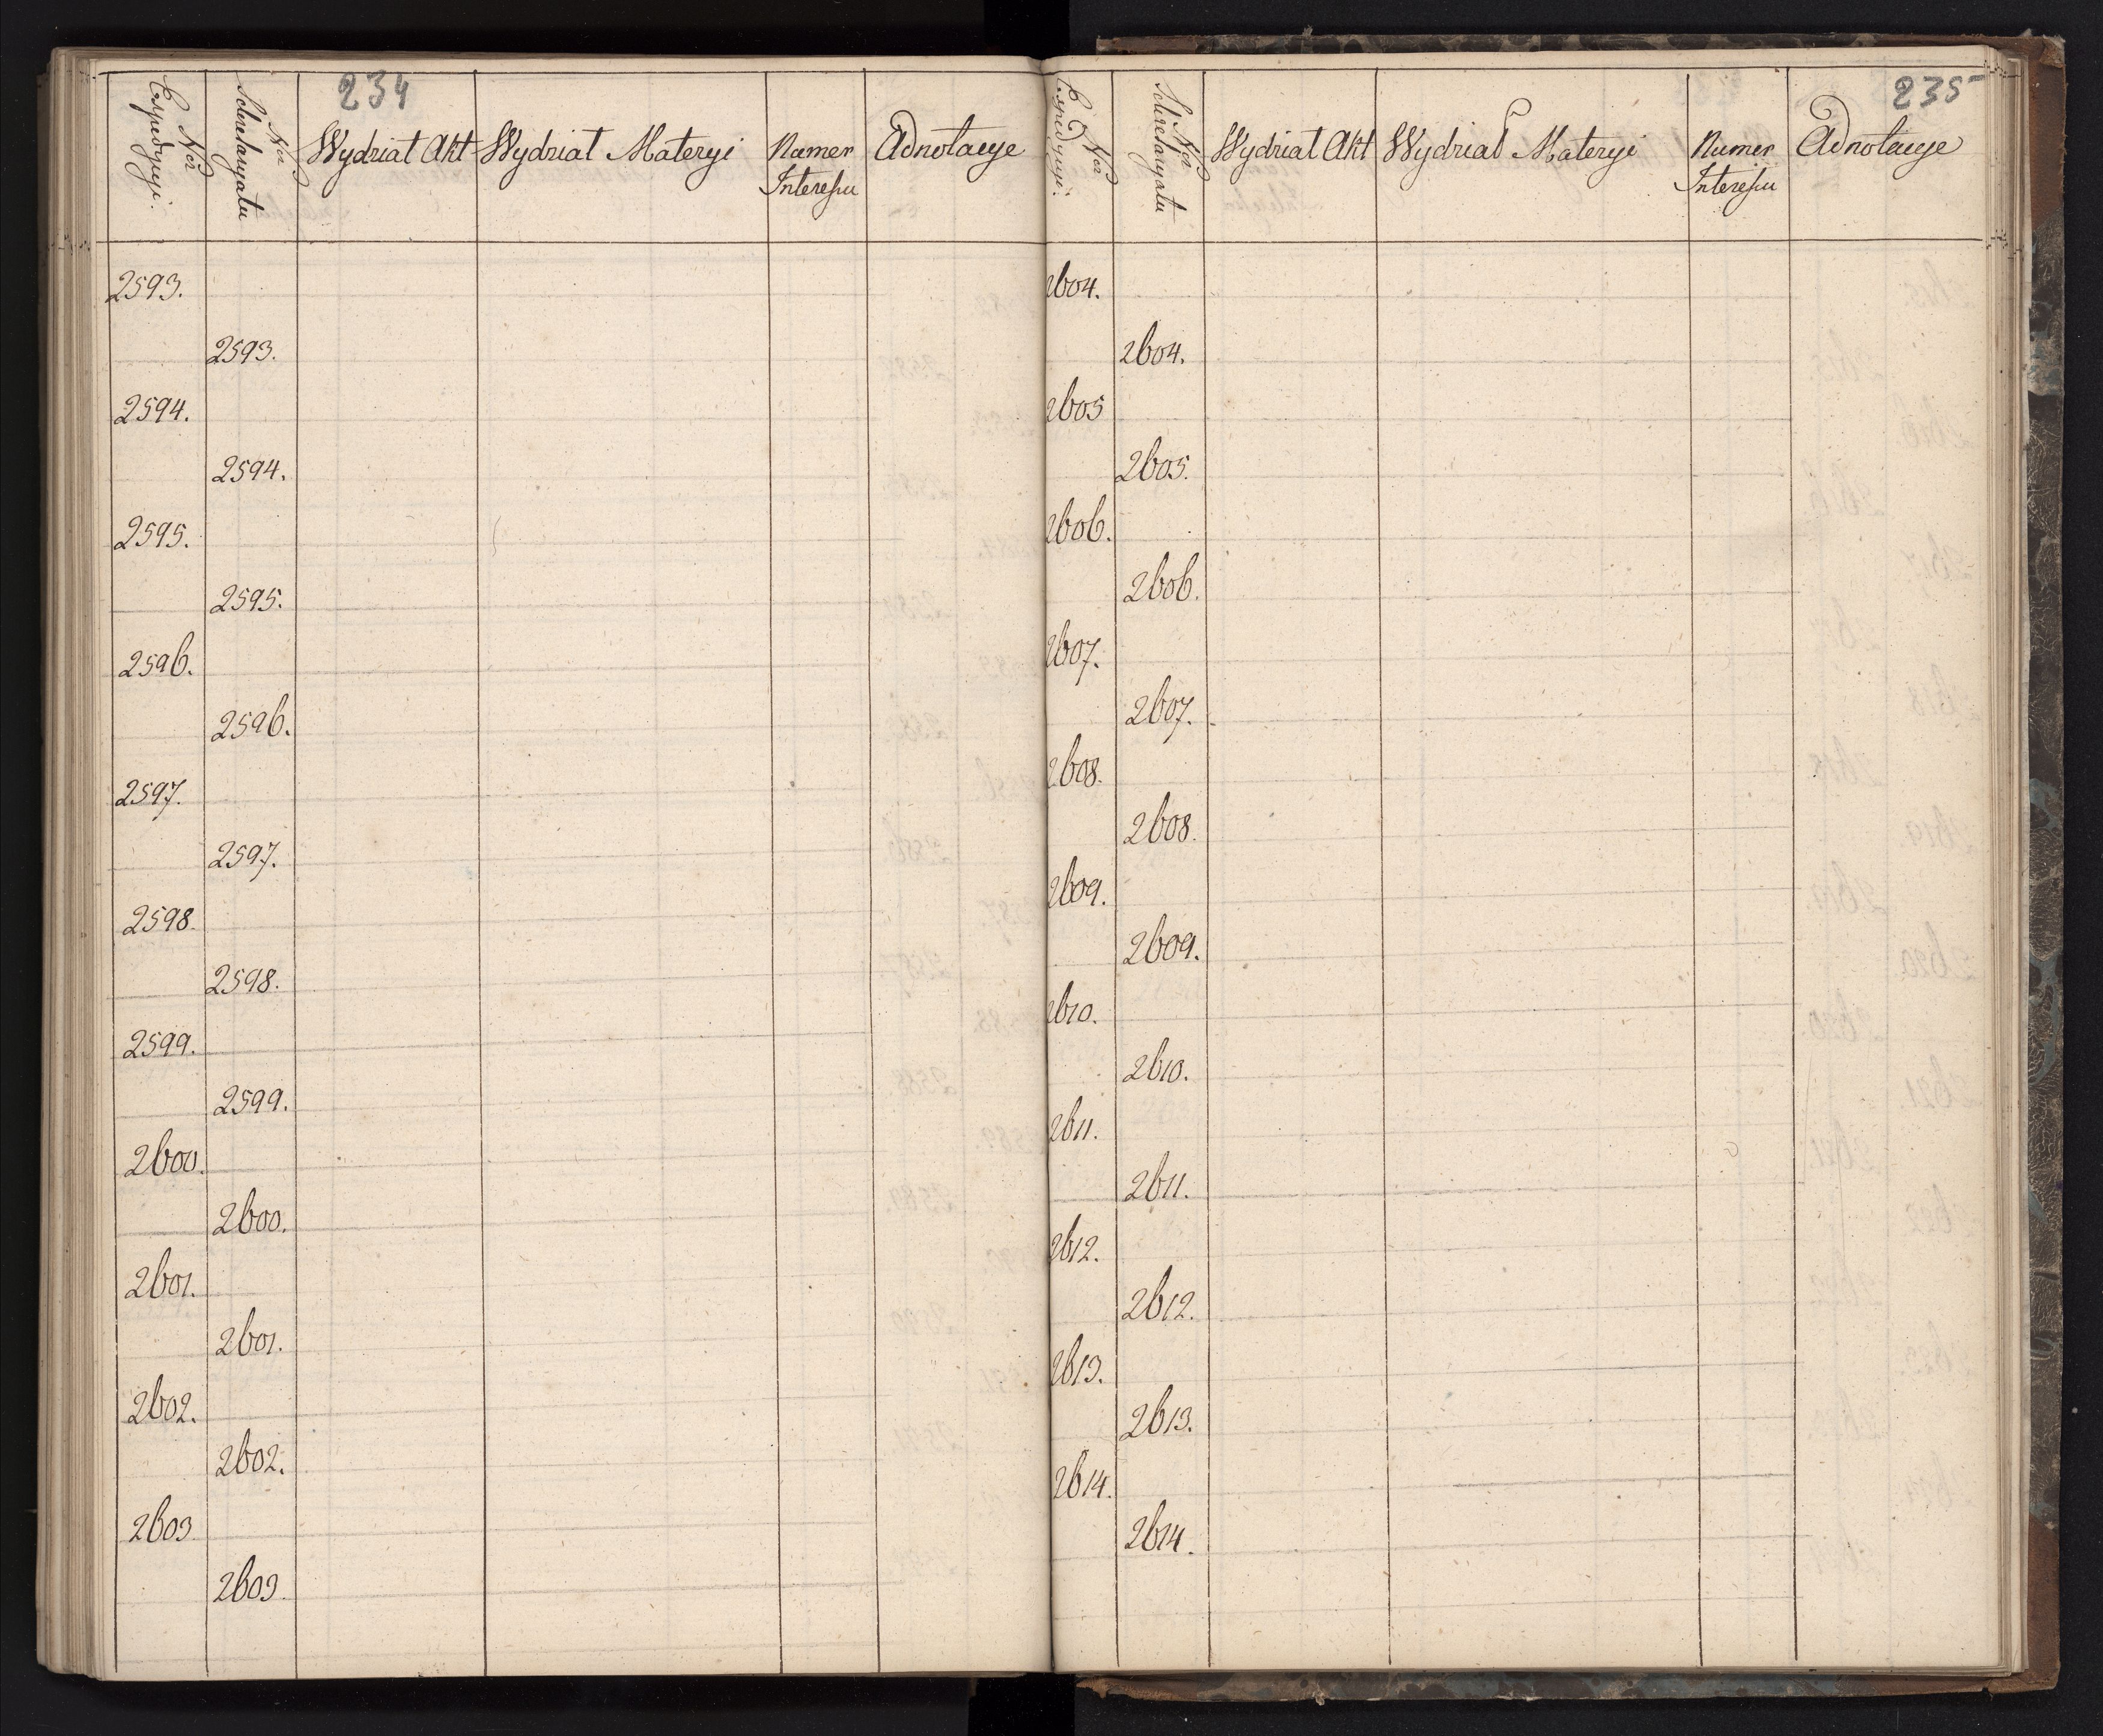 234
Nro Expedycyi.
Nro Sekretaryatu
Wydział Akt
Wydział Materyi
Numer Interessu
Adnotacye
2593.
2593.
2594.
2594.
2595.
2595.
2596.
2596.
2597.
2597.
2598.
2598.
2599.
2599.
2600.
2600.
2601.
2601.
2602.
2602.
2603
2603.
235
Nro Expedycyi.
Nro Sekretaryatu
Wydział Akt
Wydział Materyi
Numer Interessu
Adnotacye
2604.
2604.
2605
2605.
2606.
2606.
2607.
2607.
2608.
2608.
2609.
2609.
2610.
2610.
2611.
2611.
2612.
2612.
2613.
2613.
2614.
2614.